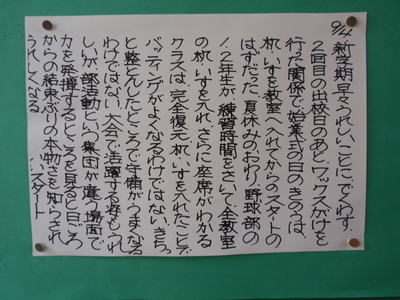 9/4 新学期早々うれしいことにでくわす、
2回目の出校日のあと、ワックスがけを
行った関係で、始業式の日のきのうは、
机、いすを教室へ入れてからのスタートの
はずだった。夏休みのおわり、野球部の
1、2年生が練習時間をさいて、全教室
の机、いすを入れ、さらに座席がわかる
クラスは、完全復元、机、いすを入れたことで
バッティングがよくなるわけではない、きちっ
と整とんしたところで守備がうまくなる
わけではない、大会で活躍する姿もうれ
しいが、部活動という集団が違う場面で
力を発揮するところを見ると日ごろ
からの結束ぶりの本物さを知らされ
うれしくなる スタート